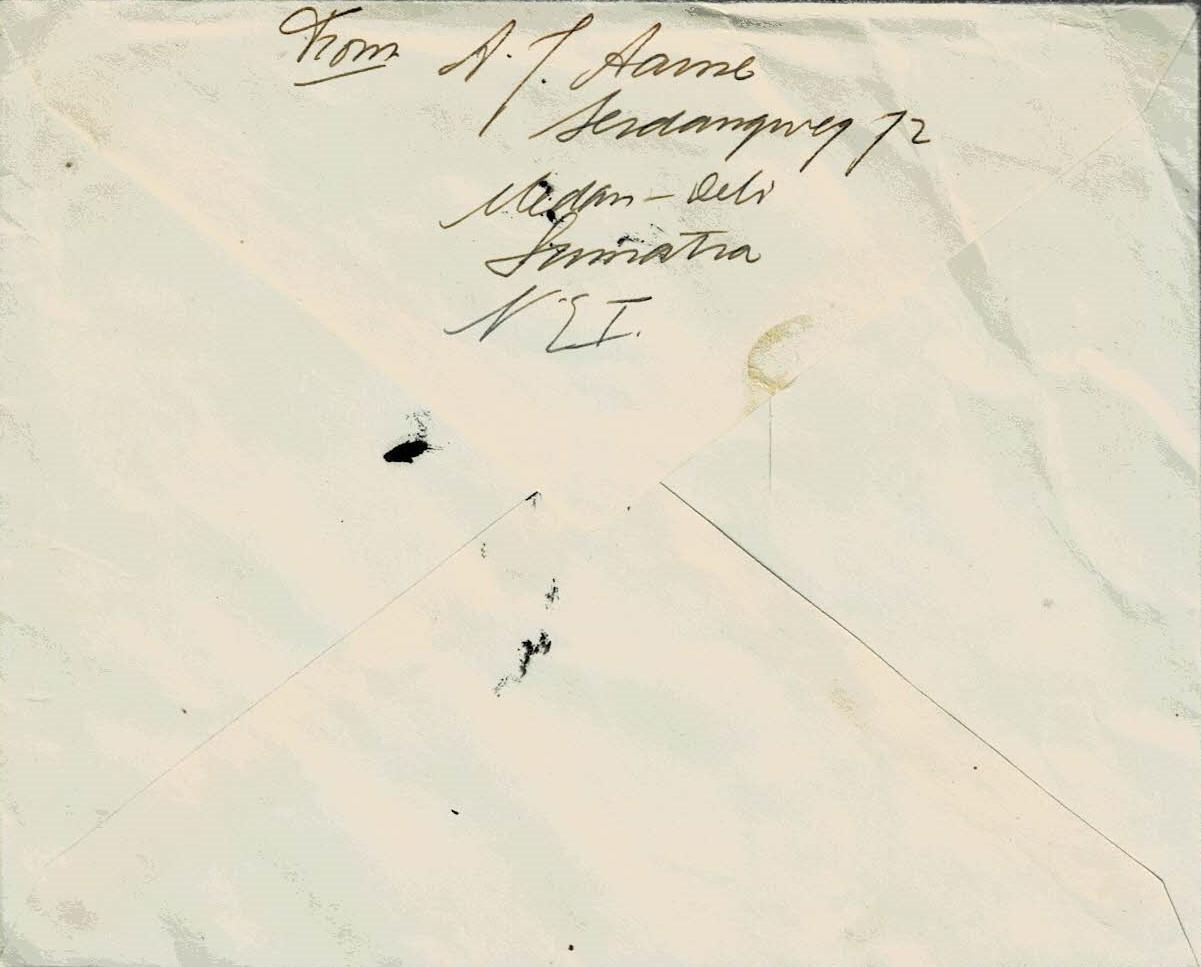 From A. J. Aarne
Serdangweg 72
Medan - Deli
Sumatra
N E I.